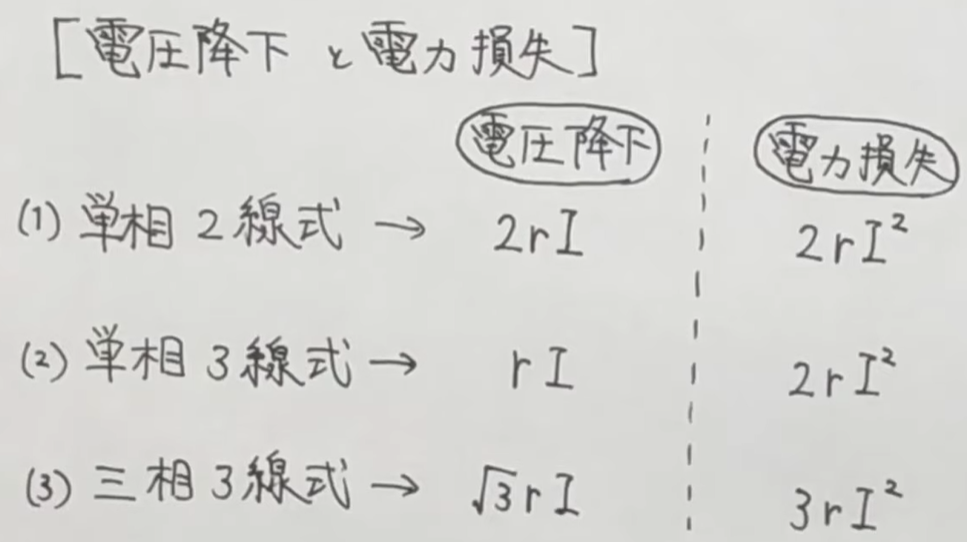 [電圧降下 と 電力損失]
電圧降下 電力損失
(1) 単相2線式 → 2rI 2rI²
(2) 単相3線式 → rI 2rI²
(3) 三相3線式 → √3rI 3rI²